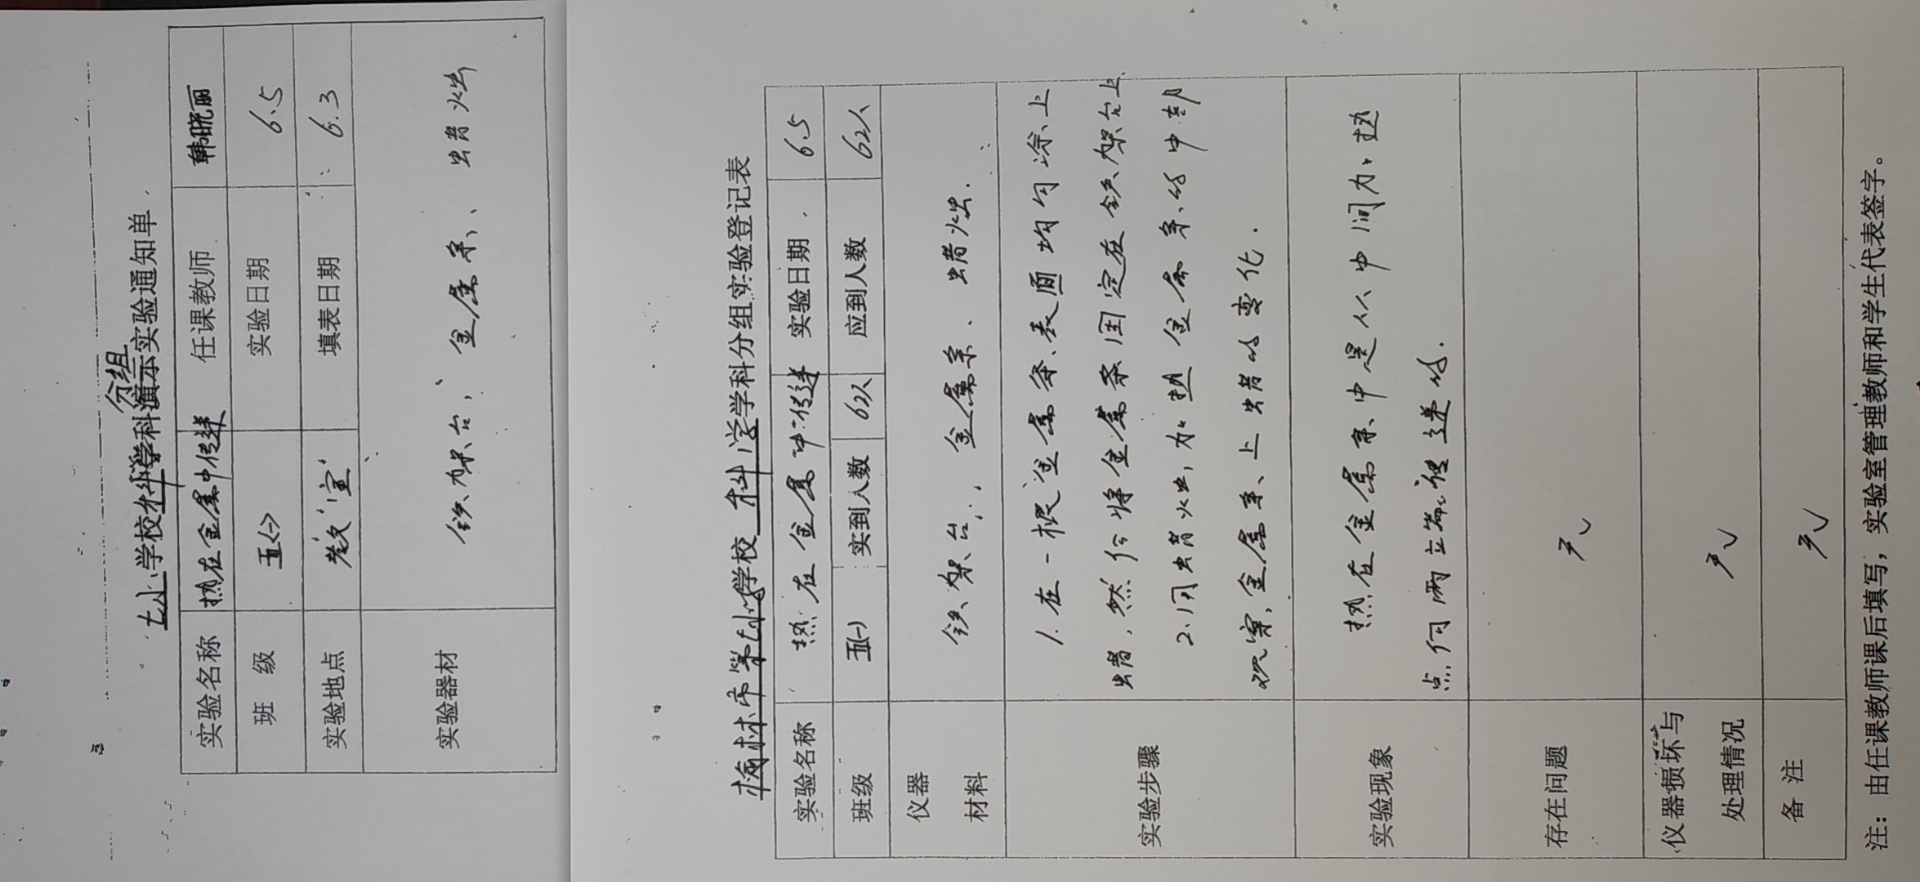 七小学校科学学科演示实验通知单
分组
实验名称 热在金属中传递 任课教师 韩晓丽
班 级 五(一) 实验日期 6.5
实验地点 教室 填表日期 6.3
实验器材 铁架台、金属条、蜡烛
梅林市第七小学校 科学学科分组实验登记表
实验名称 热在金属中传递 实验日期 6.5
班级 五(一) 实到人数 62人 应到人数 62人
仪器 材料 铁架台、金属条、蜡烛.
实验步骤 1.在一根金属条表面均匀涂上
蜡,然后将金属条固定在铁架台上
2.用蜡烛火,加热金属条的中部
观察金属条上蜡的变化.
实验现象 热在金属条中是从中间加热
点向两边传递的.
存在问题 无
仪器损坏与 处理情况 无
备 注 无
注:由任课教师课后填写,实验室管理教师和学生代表签字。